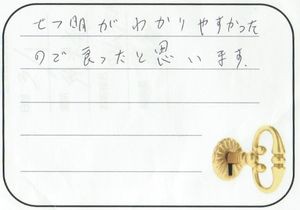 セツ明がわかりやすかった
ので良ったと思います。